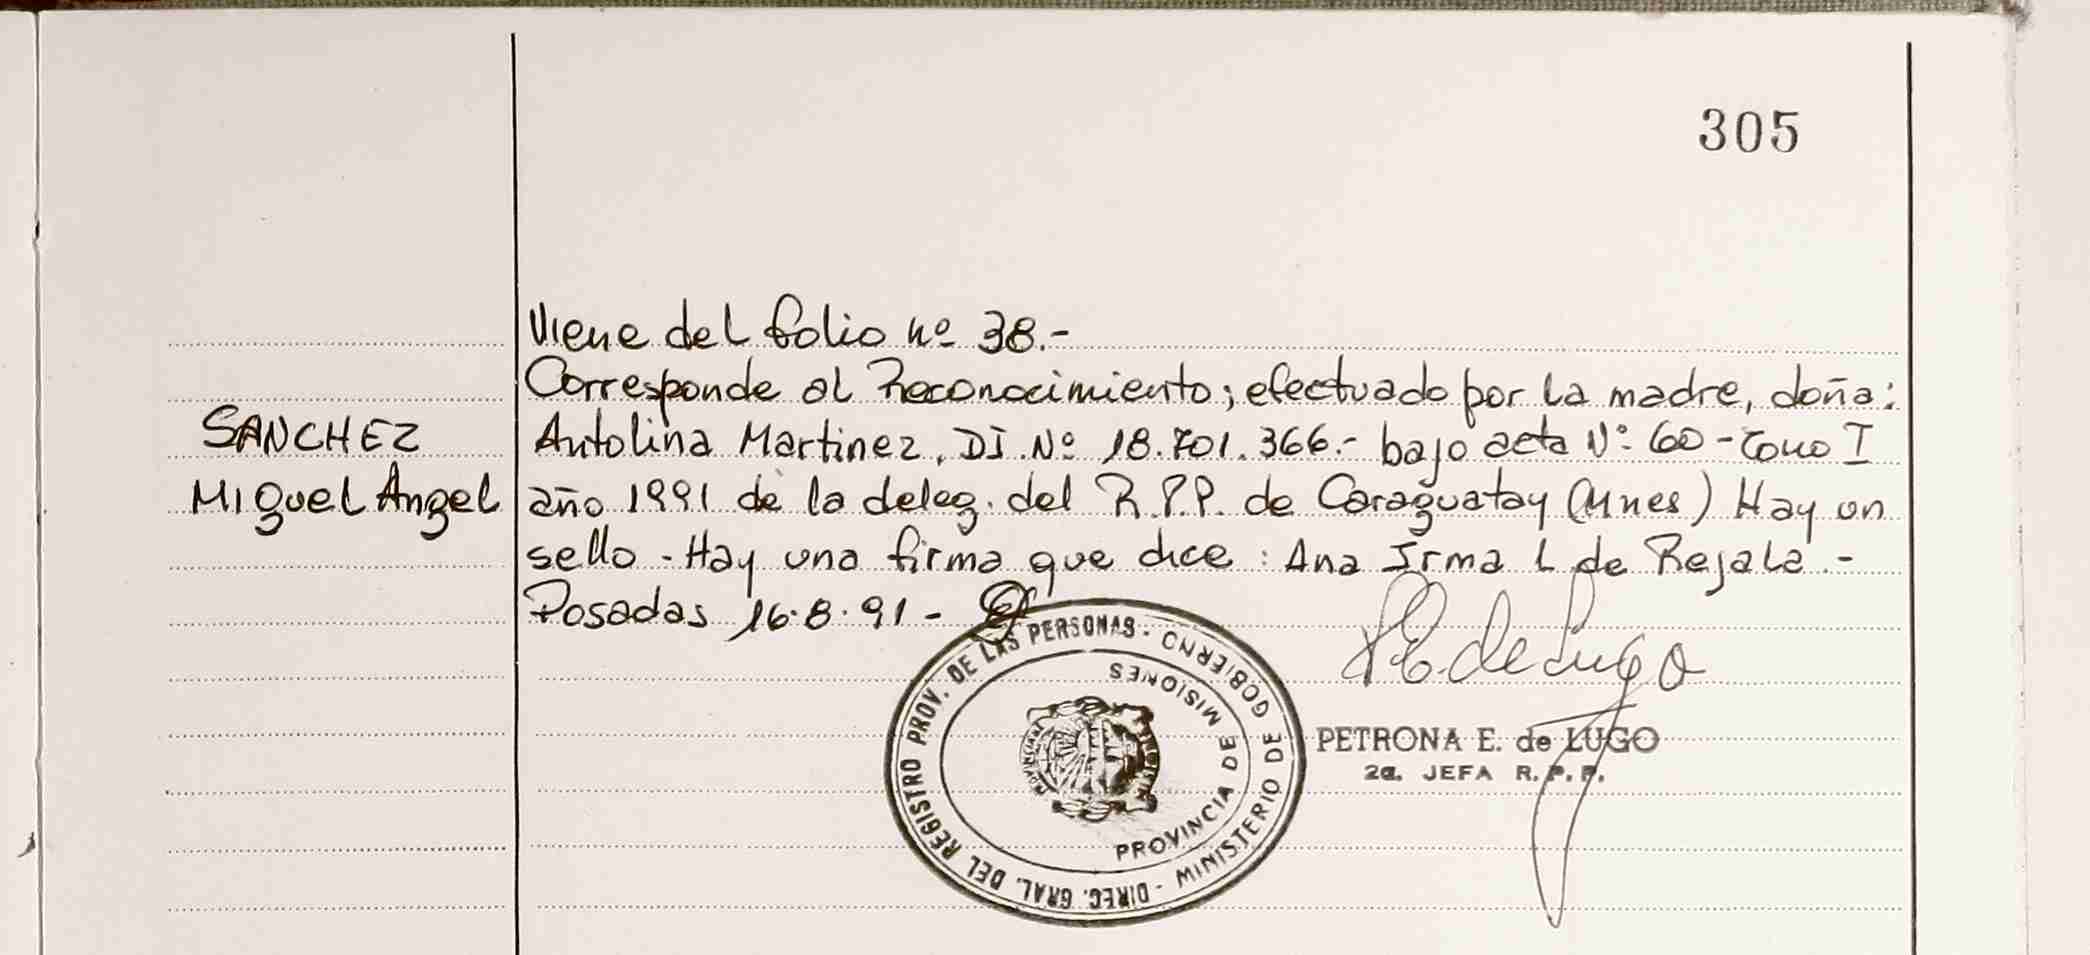 305
Viene del folio nº 38.-
Corresponde al Reconocimiento; efectuado por la madre, doña:
SANCHEZ
Antolina Martinez, DI. Nº 18.701.366.- bajo acta Nº: 60 - Tomo I
Miguel Angel
año 1991 de la deleg. del R.P.P. de Caraguatay (Mnes) Hay un
sello - Hay una firma que dice: Ana Irma L de Rejala.-
Posadas 16.8.91 -
P E. de Lugo
PETRONA E. de LUGO
2a. JEFA R.P.P.
DIREC. GRAL. DEL REGISTRO PROV. DE LAS PERSONAS - MINISTERIO DE GOBIERNO
PROVINCIA DE MISIONES